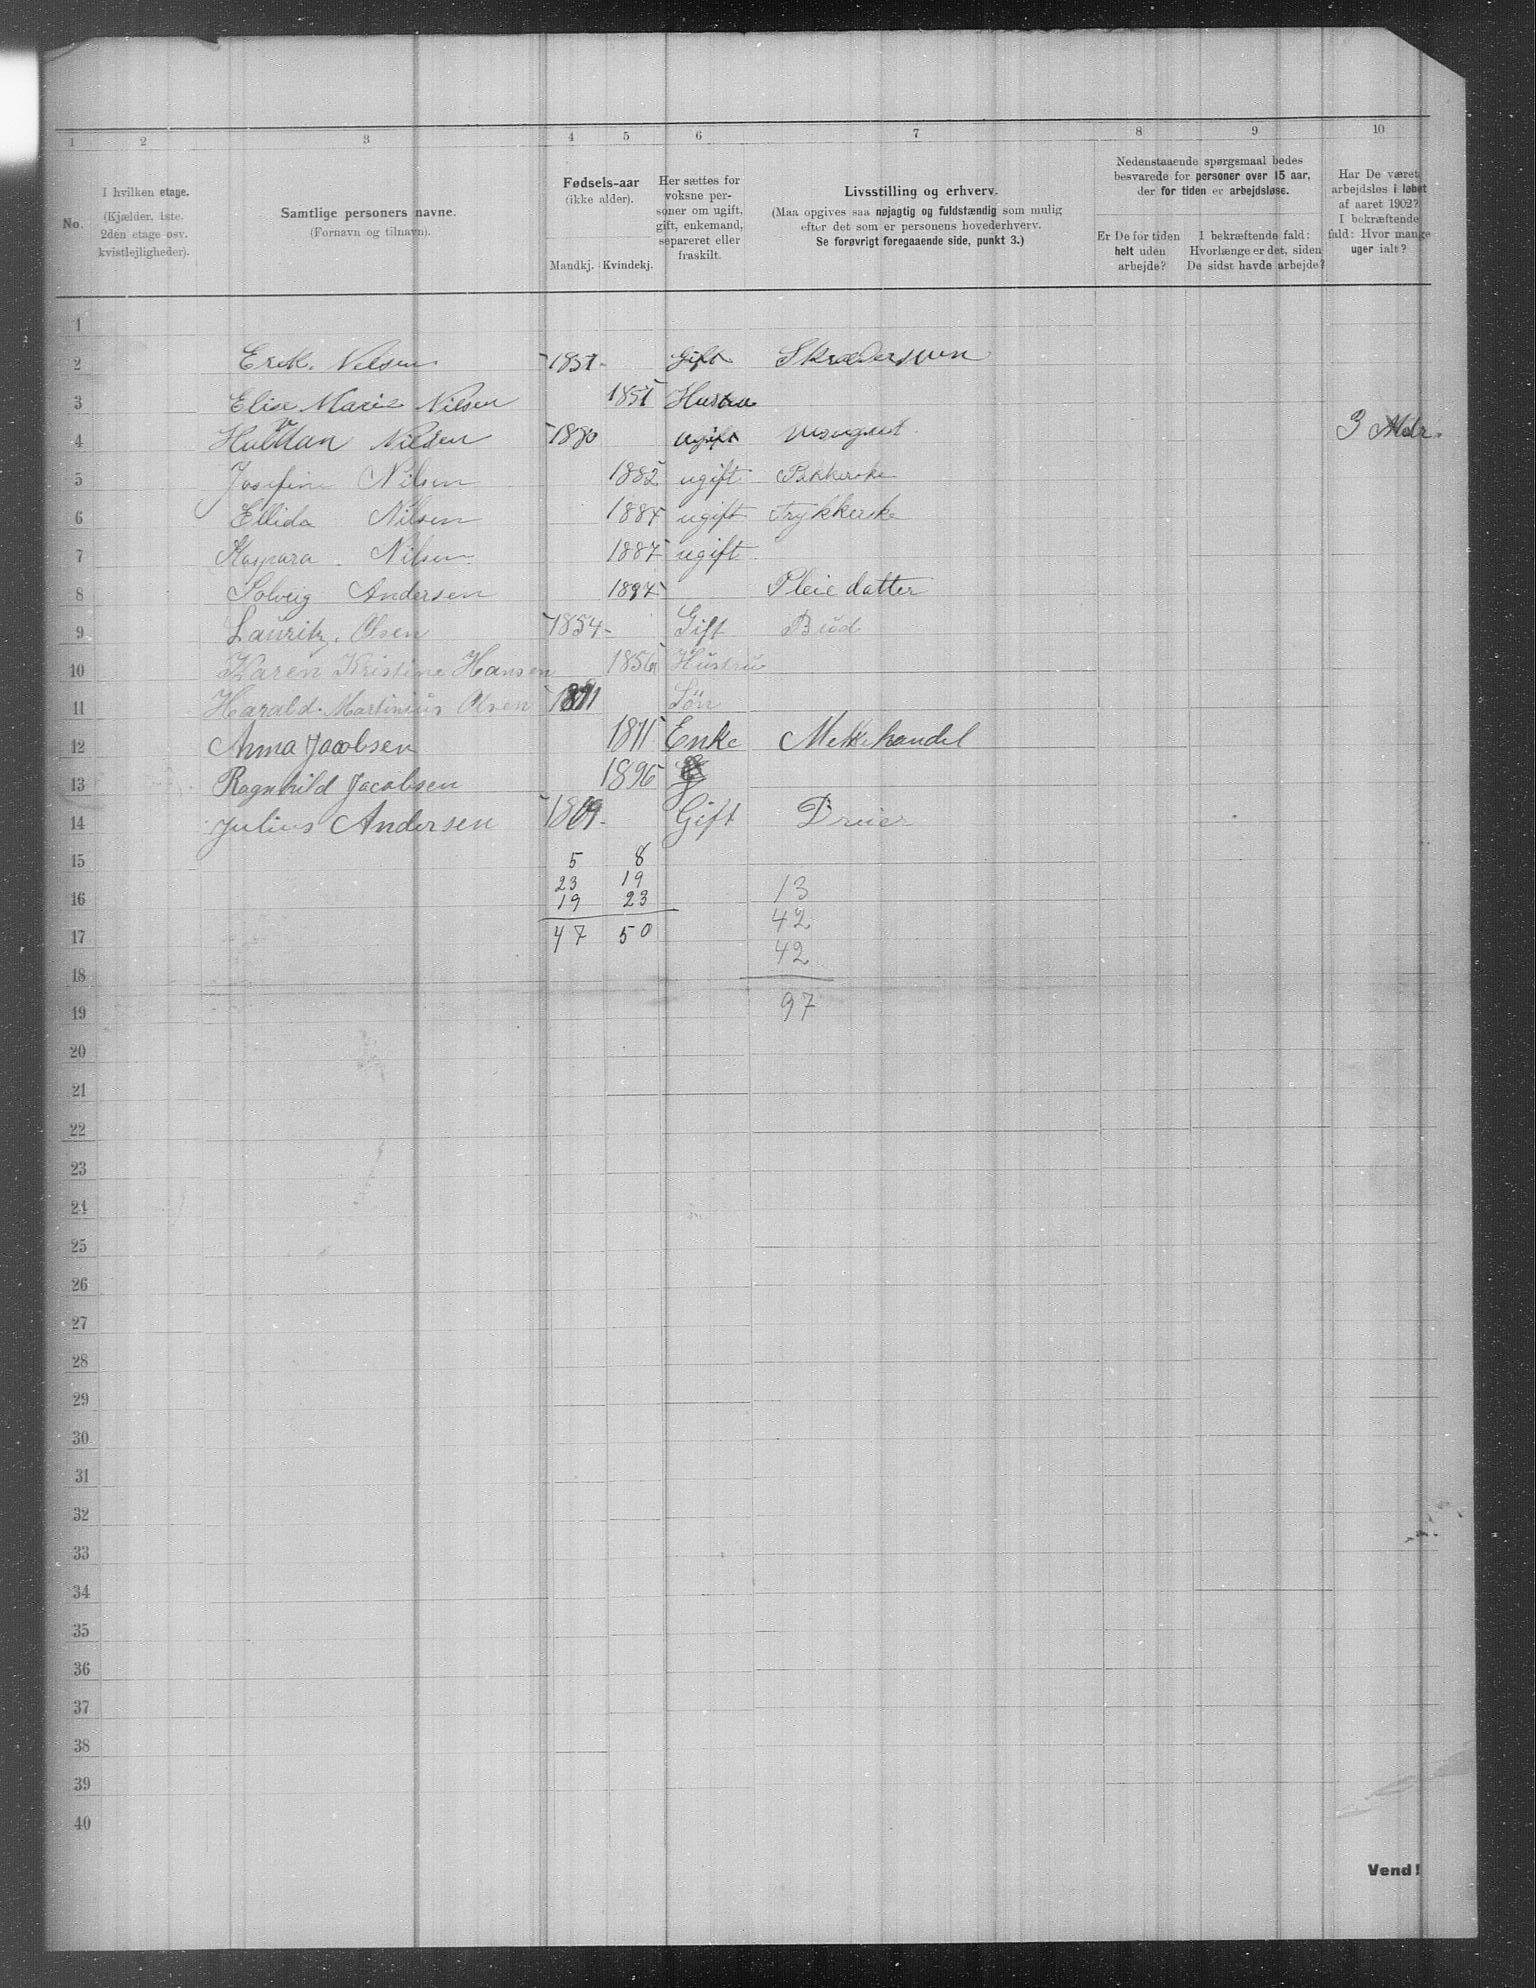 1 2 3 4 5 6 7 8 9 10
No.
I hvilken etage.
(Kjælder, 1ste,
2den etage osv.
kvistlejligheder).
Samtlige personers navne.
(Fornavn og tilnavn).
Fødsels-aar
(ikke alder).
Mandkj. Kvindekj.
Her sættes for
voksne per-
soner om ugift,
gift, enkemand,
separeret eller
fraskilt.
Livsstilling og erhverv.
(Maa opgives saa nøjagtig og fuldstændig som mulig
efter det som er personens hovederhverv.
Se forøvrigt foregaaende side, punkt 3.)
Nedenstaaende spørgsmaal bedes
besvarede for personer over 15 aar,
der for tiden er arbejdsløse.
Er De for tiden
helt uden
arbejde?
I bekræftende fald:
Hvorlænge er det, siden
De sidst havde arbejde?
Har De været
arbejdsløs i løbet
af aaret 1902?
I bekræftende
fald: Hvor mange
uger ialt?
1
2 Erik. Nilsen 1851 Gift Skrædersven
3 Elise Marie Nilsen 1851 Hustru
4 Nilsen 1880 ugift 3 Mdr.
5 Josefine Nilsen 1882 ugift
6 Ellida Nilsen 1884 ugift Trykkerske
7 Kaspara Nilsen 1887 ugift
8 Solveig Andersen Pleiedatter
9 Lauritz. Olsen 1854 Gift Bud
10 Karen Kristine Hansen 1856 Hustru
11 Harald. Martinius Olsen Søn
12 Anna Jacobsen 1871 Enke Melkehandel
13 Ragnhild Jacobsen 1896
14 Julius Andersen Gift Dreier
15 5 8
23 19
16 19 23 13
42
17 47 50
42
18
97
19
20
21
22
23
24
25
26
27
28
29
30
31
32
33
34
35
36
37
38
39
40
Vend!